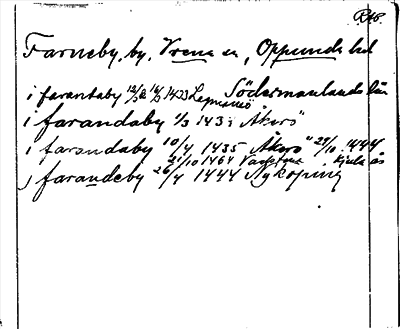 R46.
Farneby, by, Vrena sn, Oppunda hd
Södermanlands län
i farantaby 12/3 & 14/3 1433
i farandaby 1/3 143 Åkerö
i farandaby 10/4 1435 Åkerö" 29/10 1444
21/10 1464
i farandeby 26/4 1444 Nyköping